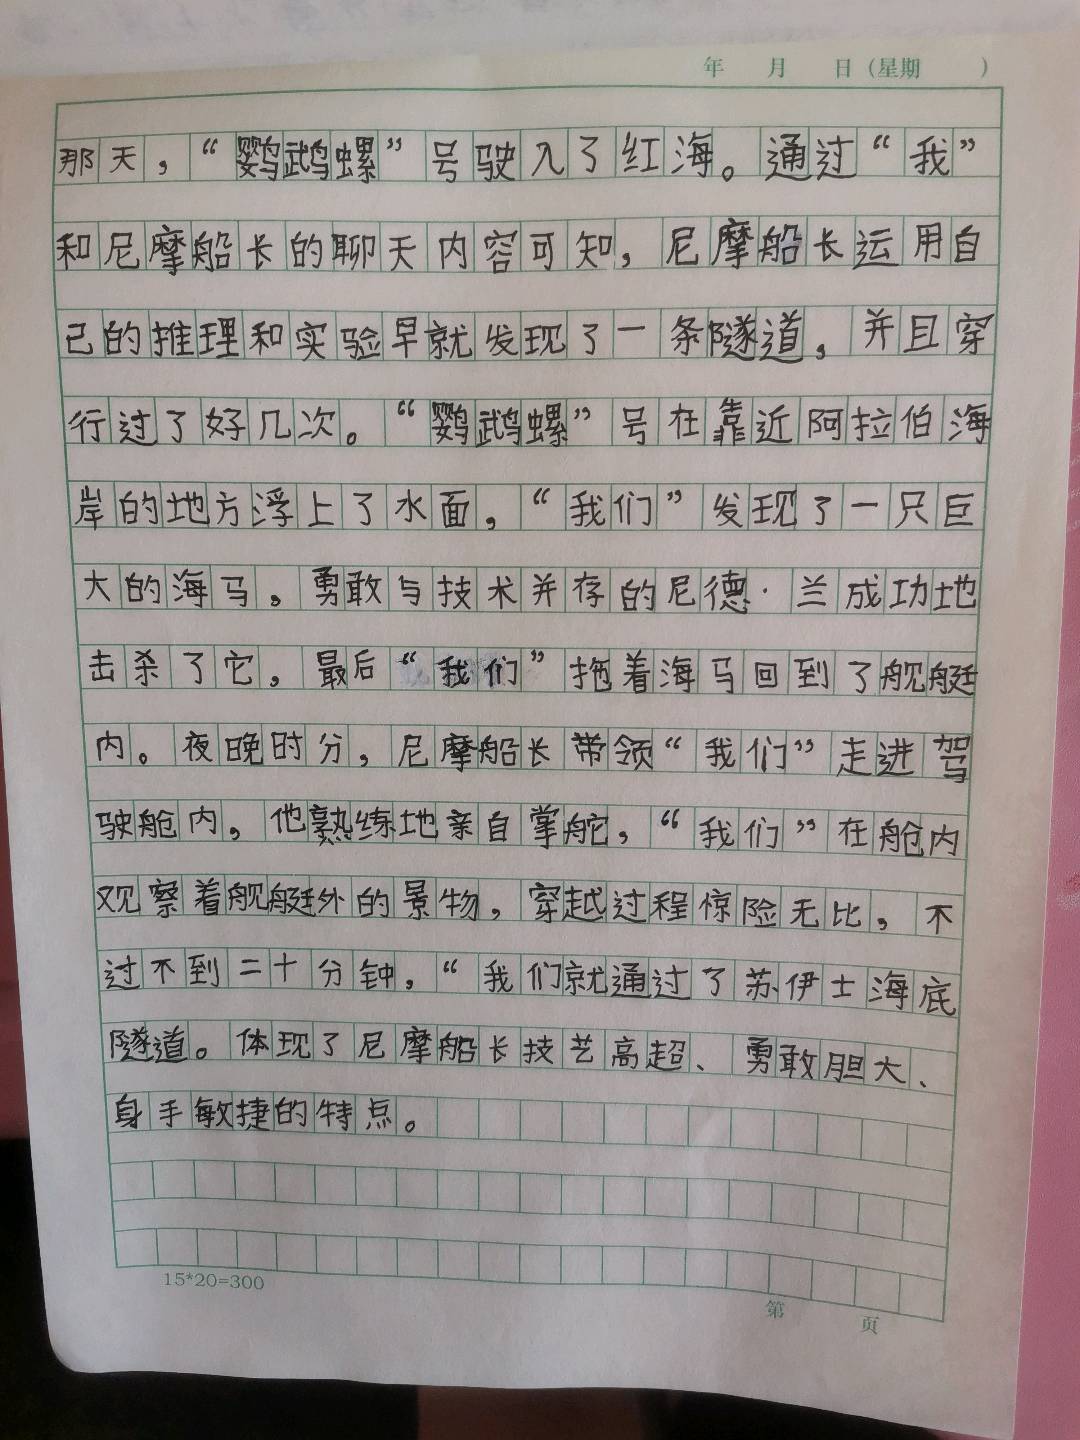 年 月 日（星期 ）
那天，“鹦鹉螺”号驶入了红海。通过“我”
和尼摩船长的聊天内容可知，尼摩船长运用自
己的推理和实验早就发现了一条隧道，并且穿
行过了好几次。“鹦鹉螺”号在靠近阿拉伯海
岸的地方浮上了水面，“我们”发现了一只巨
大的海马。勇敢与技术并存的尼德·兰成功地
击杀了它。最后“我们”拖着海马回到了舰艇
内。夜晚时分，尼摩船长带领“我们”走进驾
驶舱内，他熟练地亲自掌舵，“我们”在舱内
观察着舰艇外的景物，穿越过程惊险无比，不
过不到二十分钟，“我们就通过了苏伊士海底
隧道。体现了尼摩船长技艺高超、勇敢胆大、
身手敏捷的特点。
15*20=300
第 页